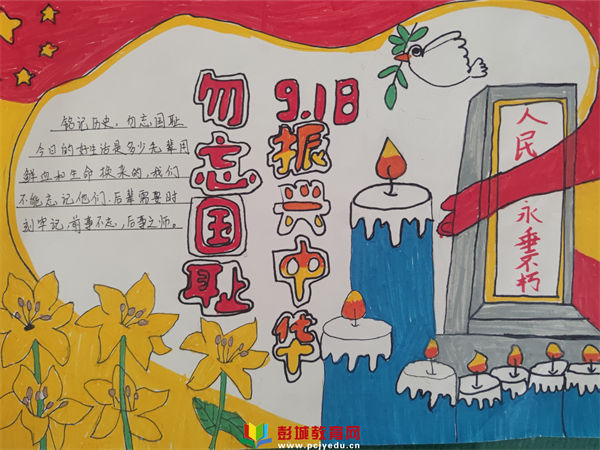 勿忘国耻
9.18
振兴中华
铭记历史,勿忘国耻
今日的好生活是多少先辈用
鲜血和生命换来的,我们
不能忘记他们.后辈需要时
刻牢记,前事不忘,后事之师。
人民
永垂不朽
彭城教育网
www.pcjyedu.cn